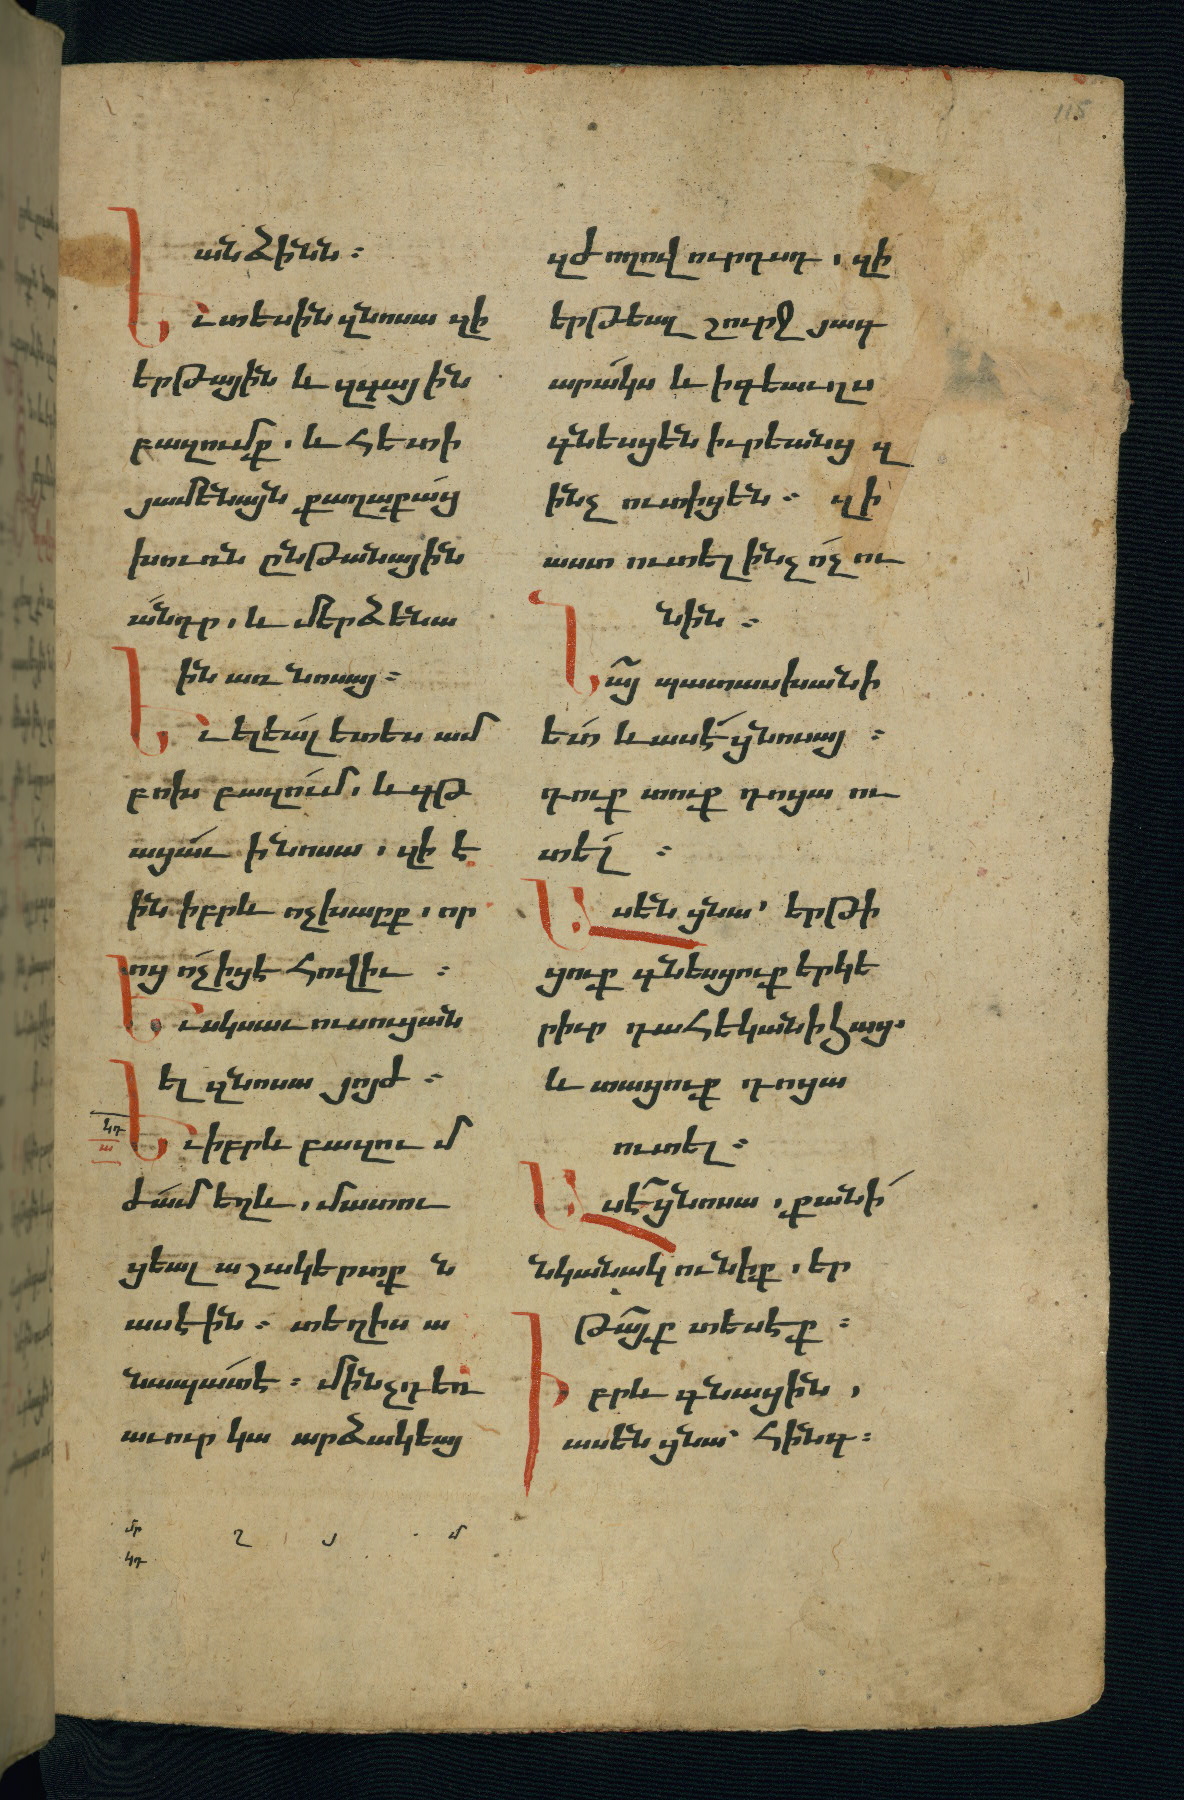 115
անձինն ։
Եւ տեսին զնոսա զի
երթային և զգային
բազումք . և հետի
յամենայն քաղաքաց
խուռն ընթանային
անդր . և մերձենա
ին առ նոսայ ։
Եւ ելեալ ետես ամ
բոխ բազում . և գթ
ացաւ ի նոսա . զի է
ին իբրև ոչխարք . որ
ոց ոչ իցէ հովիւ ։
Եւ սկսաւ ուսուցան
ել զնոսա յոյժ ։
կդ
ա
Եւ իբրև բազում
ժամ եղև . մատու
ցեալ աշակերտք ն
ասէին ։ տեղիս ա
նապատէ ։ մինչդեռ
աւուր կա արձակեայ
զժողովուրդսդ . զի
երթեալ շուրջ յագ
արակս և ի գեաւղս
գնեսցեն իւրեանց զ
ինչ ուտիցեն ։ զի
աստ ուտել ինչ ոչ ու
նին ։
Նայ պատասխանի
ետ և ասէ ցնոսայ ։
դուք տուք դոցա ու
տել ։
Ասեն ցնա՝ երթի
ցուք գնեսցուք երկե
րիւր դահեկանի հաց.
և տացուք դոցա
ուտել ։
Ասէ ցնոսա . քանի
նկանակ ունիք . եր
թայք տեսէք ։
Իբրև գնացին .
ասեն ցնա՝ հինգ ։
մր
կդ
շ յ մ